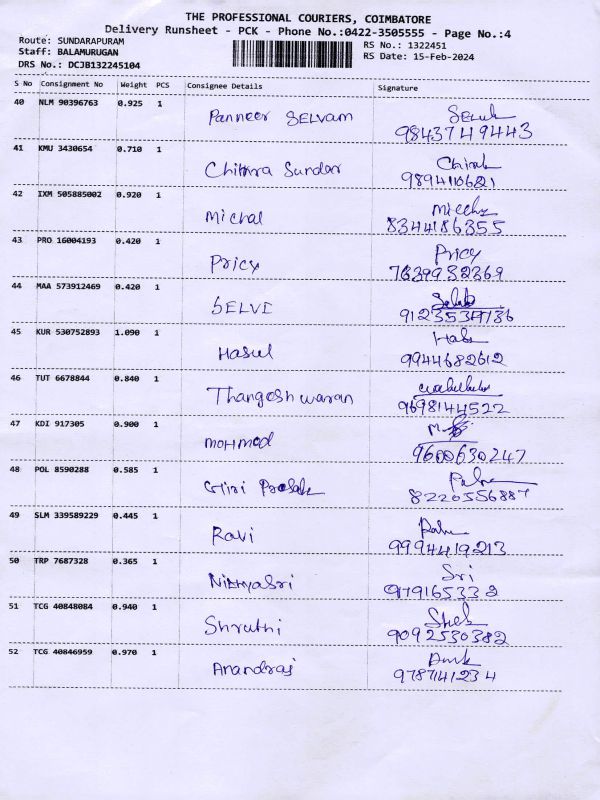 THE PROFESSIONAL COURIERS, COIMBATORE
Delivery Runsheet - PCK - Phone No.:0422-3505555 - Page No.:4
Route: SUNDARAPURAM
RS No.: 1322451
Staff: BALAMURUGAN
RS Date: 15-Feb-2024
DRS No.: DCJB132245104
S No Consignment No Weight PCS Consignee Details Signature
40 NLM 90396763 0.925 1 Panneer SELVAM
9843749443
41 KMU 3430654 0.710 1 Chithra Sundar
9894110621
42 IXM 505885002 0.920 1 Michal
8344186355
43 PRO 16004193 0.420 1 Pricy Pricy
7639932369
44 MAA 573912469 0.420 1 SELVI
45 KUR 530752893 1.090 1 Hasul
9944682612
46 TUT 6678844 0.840 1 Thangeshwaran
9698144522
47 KDI 917305 0.900 1 MOHMED
9600630247
48 POL 8590288 0.585 1 Giri
8220556887
49 SLM 339589229 0.445 1 Ravi
9994419213
50 TRP 7687328 0.365 1 NithyaSri Sri
51 TCG 40848084 0.940 1 Shruthi
9092530382
52 TCG 40846959 0.970 1 Anandraj
9787141234